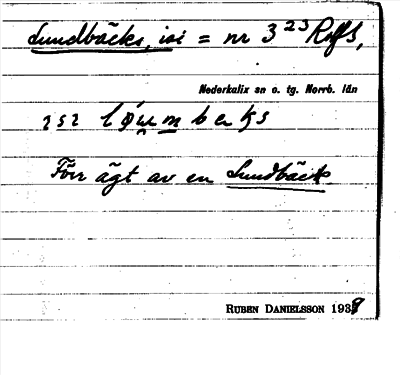 Lundbäcks, isi = nr 3²³ Rolfs,
Nederkalix sn o. tg. Norrb. län
Förr ägt av en Lundbäck
RUBEN DANIELSSON 1938